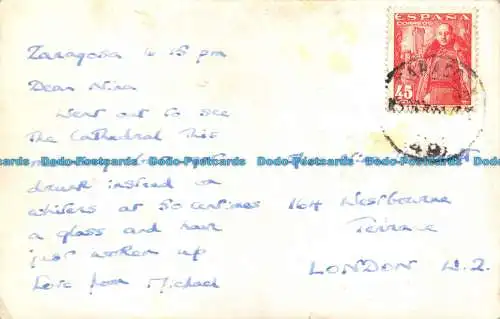 Zaragosa 4 15 pm
Dear Nina
Went out to see
The Cathedral This
drunk instead on
whiters at 50 centimes
a glass and have
just woken up
Love from Michael
ESPAÑA
CORREOS
45
164 Westbourne
Terrace
LONDON W.2.
Dodo-Postcards Dodo-Postcards Dodo-Postcards Dodo-Postcards
Dodo-Postcards Dodo-Postcards Dodo-Postcards Dodo-Postcards